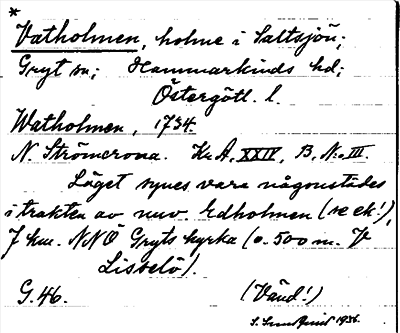 *
Vatholmen, holme i Saltsjön;
Gryt sn; Hammarkinds hd;
Östergötl. l.
Watholmen, 1734.
N. Strömcrona. Kr. A, XXIV, B, No. III.
Läget synes vara någonstädes
i trakten av nuv. Edholmen (se ek!),
7 km. NNÖ Gryts kyrka (o. 500 m. V
Lisselö).
G. 46. (Vänd!)
S. 1936.